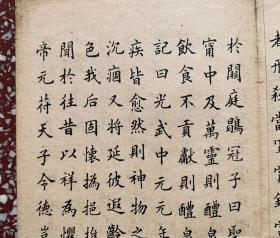 者刑殺當罪賞錫
於闕庭鶡冠子曰聖
甯中及萬靈則醴
飲食不貢獻則醴泉
記曰光武中元元
疾皆愈然則神物之
沉痼又將延彼遐齡
色我后固懷撝挹推
聞於往昔以祥為懼
帝元苻天子令德豈